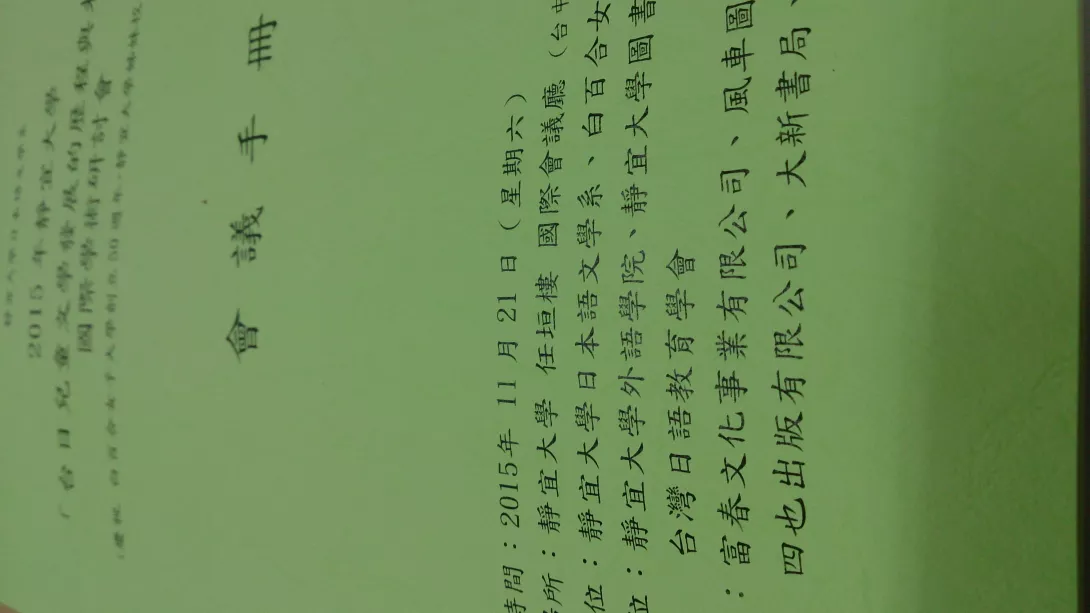 2015 年靜宜大學
「台日兒童文學發展的歷程與
國際學術研討會
會議手冊
時間：2015年 11 月 21 日（星期六）
所：靜宜大學 任垣樓 國際會議廳（台中
位：靜宜大學日本語文學系、白百合女
位：靜宜大學外語學院、靜宜大學圖書
台灣日語教育學會
：富春文化事業有限公司、風車圖
四也出版有限公司、大新書局、